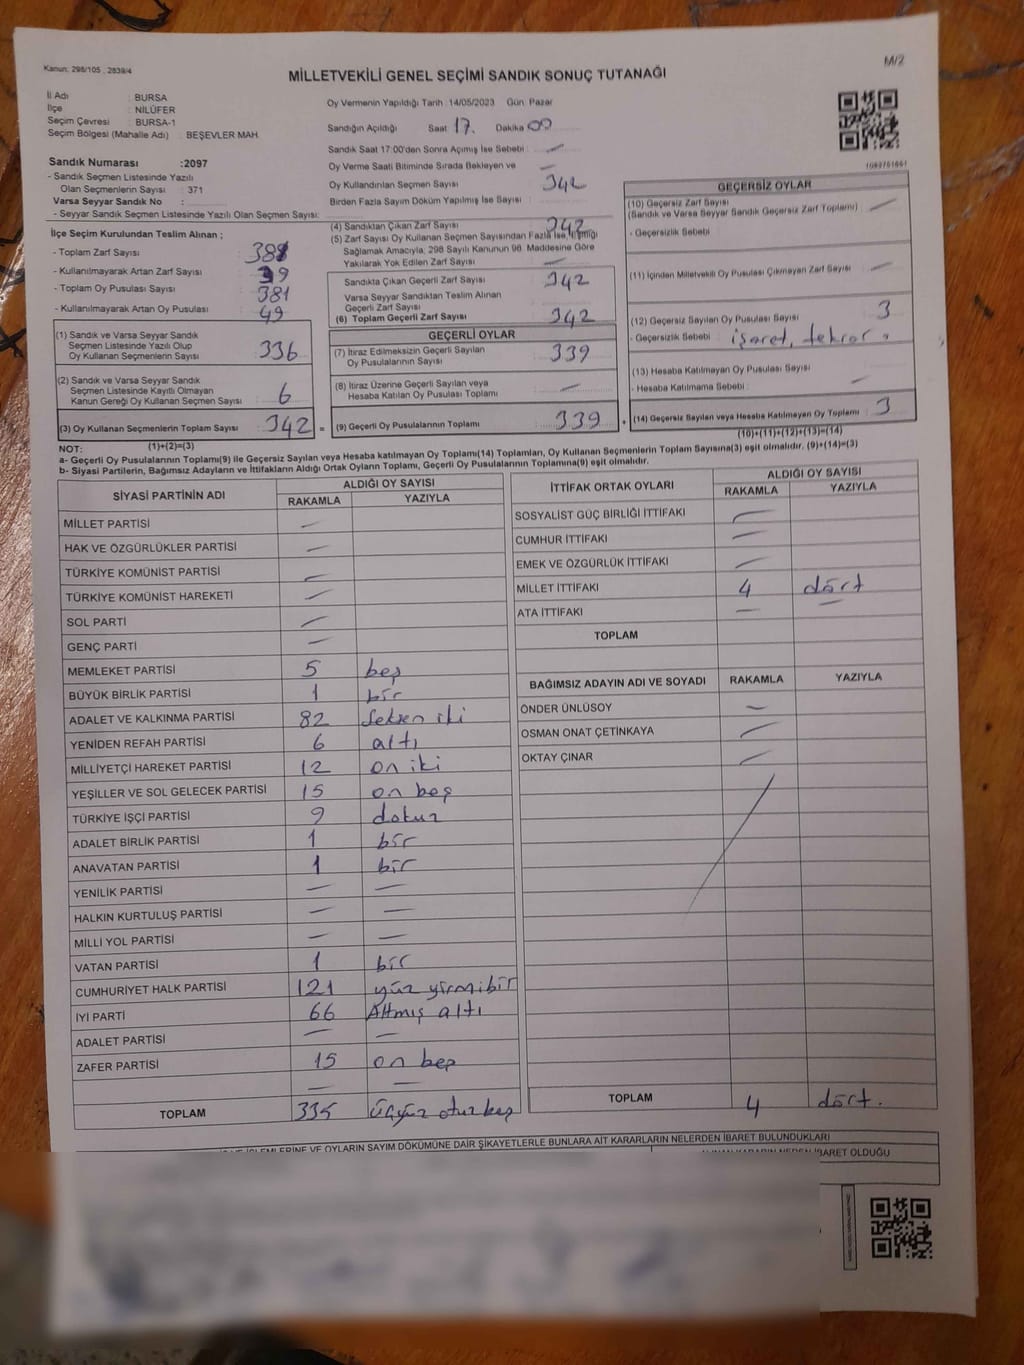 Kanun: 298/105 , 2839/4
M/2
MİLLETVEKİLİ GENEL SEÇİMİ SANDIK SONUÇ TUTANAĞI
İl Adı : BURSA
İlçe : NİLÜFER
Seçim Çevresi : BURSA-1
Seçim Bölgesi (Mahalle Adı) : BEŞEVLER MAH.
Sandık Numarası :2097
- Sandık Seçmen Listesinde Yazılı
Olan Seçmenlerin Sayısı : 371
Varsa Seyyar Sandık No :
- Seyyar Sandık Seçmen Listesinde Yazılı Olan Seçmen Sayısı:
Oy Vermenin Yapıldığı Tarih : 14/05/2023 Gün Pazar
Sandığın Açıldığı Saat 17. Dakika 00
Sandık Saat 17:00'den Sonra Açımış İse Sebebi : —
Oy Verme Saati Bitiminde Sırada Bekleyen ve —
Oy Kullandırılan Seçmen Sayısı 342
Birden Fazla Sayım Döküm Yapılmış İse Sayısı :
İlçe Seçim Kurulundan Teslim Alınan ;
- Toplam Zarf Sayısı
- Kullanılmayarak Artan Zarf Sayısı
- Toplam Oy Pusulası Sayısı 381
- Kullanılmayarak Artan Oy Pusulası 49
(1) Sandık ve Varsa Seyyar Sandık
Seçmen Listesinde Yazılı Olup
Oy Kullanan Seçmenlerin Sayısı 336
(2) Sandık ve Varsa Seyyar Sandık
Seçmen Listesinde Kayıtlı Olmayan
Kanun Gereği Oy Kullanan Seçmen Sayısı 6
(3) Oy Kullanan Seçmenlerin Toplam Sayısı 342 =
(1)+(2)=(3)
(4) Sandıktan Çıkan Zarf Sayısı 342
(5) Zarf Sayısı Oy Kullanan Seçmen Sayısından Fazla İse, Eşitliği
Sağlamak Amacıyla, 298 Sayılı Kanunun 98. Maddesine Göre
Yakılarak Yok Edilen Zarf Sayısı —
Sandıkta Çıkan Geçerli Zarf Sayısı 342
Varsa Seyyar Sandıktan Teslim Alınan
Geçerli Zarf Sayısı
(6) Toplam Geçerli Zarf Sayısı 342
GEÇERLİ OYLAR
(7) İtiraz Edilmeksizin Geçerli Sayılan
Oy Pusulalarının Sayısı 339
(8) İtiraz Üzerine Geçerli Sayılan veya
Hesaba Katılan Oy Pusulası Toplamı —
(9) Geçerli Oy Pusulalarının Toplamı 339 +
1089761661
GEÇERSİZ OYLAR
(10) Geçersiz Zarf Sayısı
(Sandık ve Varsa Seyyar Sandık Geçersiz Zarf Toplamı) —
- Geçersizlik Sebebi
(11) İçinden Milletvekili Oy Pusulası Çıkmayan Zarf Sayısı —
(12) Geçersiz Sayılan Oy Pusulası Sayısı 3
- Geçersizlik Sebebi : işaret, tekrar
(13) Hesaba Katılmayan Oy Pusulası Sayısı
- Hesaba Katılmama Sebebi : —
(14) Geçersiz Sayılan veya Hesaba Katılmayan Oy Toplamı 3
(10)+(11)+(12)+(13)=(14)
NOT:
a- Geçerli Oy Pusulalarının Toplamı(9) ile Geçersiz Sayılan veya Hesaba katılmayan Oy Toplamı(14) Toplamları, Oy Kullanan Seçmenlerin Toplam Sayısına(3) eşit olmalıdır. (9)+(14)=(3)
b- Siyasi Partilerin, Bağımsız Adayların ve İttifakların Aldığı Ortak Oyların Toplamı, Geçerli Oy Pusulalarının Toplamına(9) eşit olmalıdır.
SİYASİ PARTİNİN ADI ALDIĞI OY SAYISI
RAKAMLA YAZIYLA
MİLLET PARTİSİ —
HAK VE ÖZGÜRLÜKLER PARTİSİ —
TÜRKİYE KOMÜNİST PARTİSİ —
TÜRKİYE KOMÜNİST HAREKETİ —
SOL PARTİ —
GENÇ PARTİ —
MEMLEKET PARTİSİ 5 beş
BÜYÜK BİRLİK PARTİSİ 1 bir
ADALET VE KALKINMA PARTİSİ 82 seksen iki
YENİDEN REFAH PARTİSİ 6 altı
MİLLİYETÇİ HAREKET PARTİSİ 12 on iki
YEŞİLLER VE SOL GELECEK PARTİSİ 15 on beş
TÜRKİYE İŞÇİ PARTİSİ 9 dokuz
ADALET BİRLİK PARTİSİ 1 bir
ANAVATAN PARTİSİ 1 bir
YENİLİK PARTİSİ — —
HALKIN KURTULUŞ PARTİSİ — —
MİLLİ YOL PARTİSİ — —
VATAN PARTİSİ 1 bir
CUMHURİYET HALK PARTİSİ 121 yüz yirmibir
İYİ PARTİ 66 Altmış altı
ADALET PARTİSİ — —
ZAFER PARTİSİ 15 on beş
— —
TOPLAM 335 üçyüz otuz beş
İTTİFAK ORTAK OYLARI ALDIĞI OY SAYISI
RAKAMLA YAZIYLA
SOSYALİST GÜÇ BİRLİĞİ İTTİFAKI —
CUMHUR İTTİFAKI —
EMEK VE ÖZGÜRLÜK İTTİFAKI —
MİLLET İTTİFAKI 4 dört
ATA İTTİFAKI — —
TOPLAM
BAĞIMSIZ ADAYIN ADI VE SOYADI RAKAMLA YAZIYLA
ÖNDER ÜNLÜSOY —
OSMAN ONAT ÇETİNKAYA —
OKTAY ÇINAR —
TOPLAM 4 dört.
İŞLEMLERİNE VE OYLARIN SAYIM DÖKÜMÜNE DAİR ŞİKAYETLERLE BUNLARA AİT KARARLARIN NELERDEN İBARET BULUNDUKLARI
ALINAN KARARIN NEDEN İBARET OLDUĞU